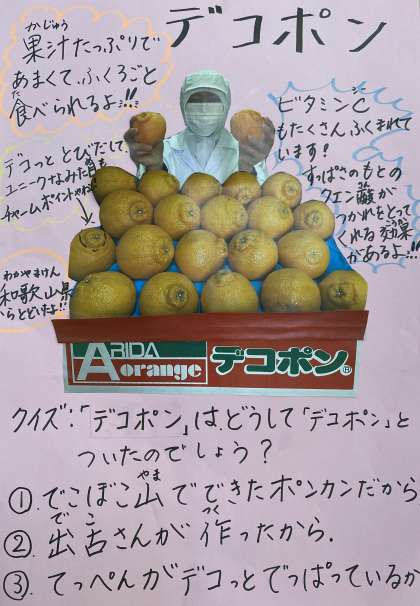 デコポン
かじゅう
果汁たっぷりで
あまくて、ふくろごと
た
食べられるよ!!!
デコっと とびだして、
ユニークなみた目も
チャームポイントやね
わかやまけん
和歌山県
からとどいたよ!!
シー
ビタミンC
もたくさんふくまれて
います!
すっぱさのもとの
さん
クエン酸が
つかれをとって
こうか
くれる効果
があるよ!!!
ARIDA
orange
デコポン®
クイズ:「デコポン」は、どうして「デコポン」と
ついたのでしょう?
やま
①.でこぼこ山でできたポンカンだから
でこ つく
②.出古さんが作ったから.
③.てっぺんがデコっとでっぱっているか